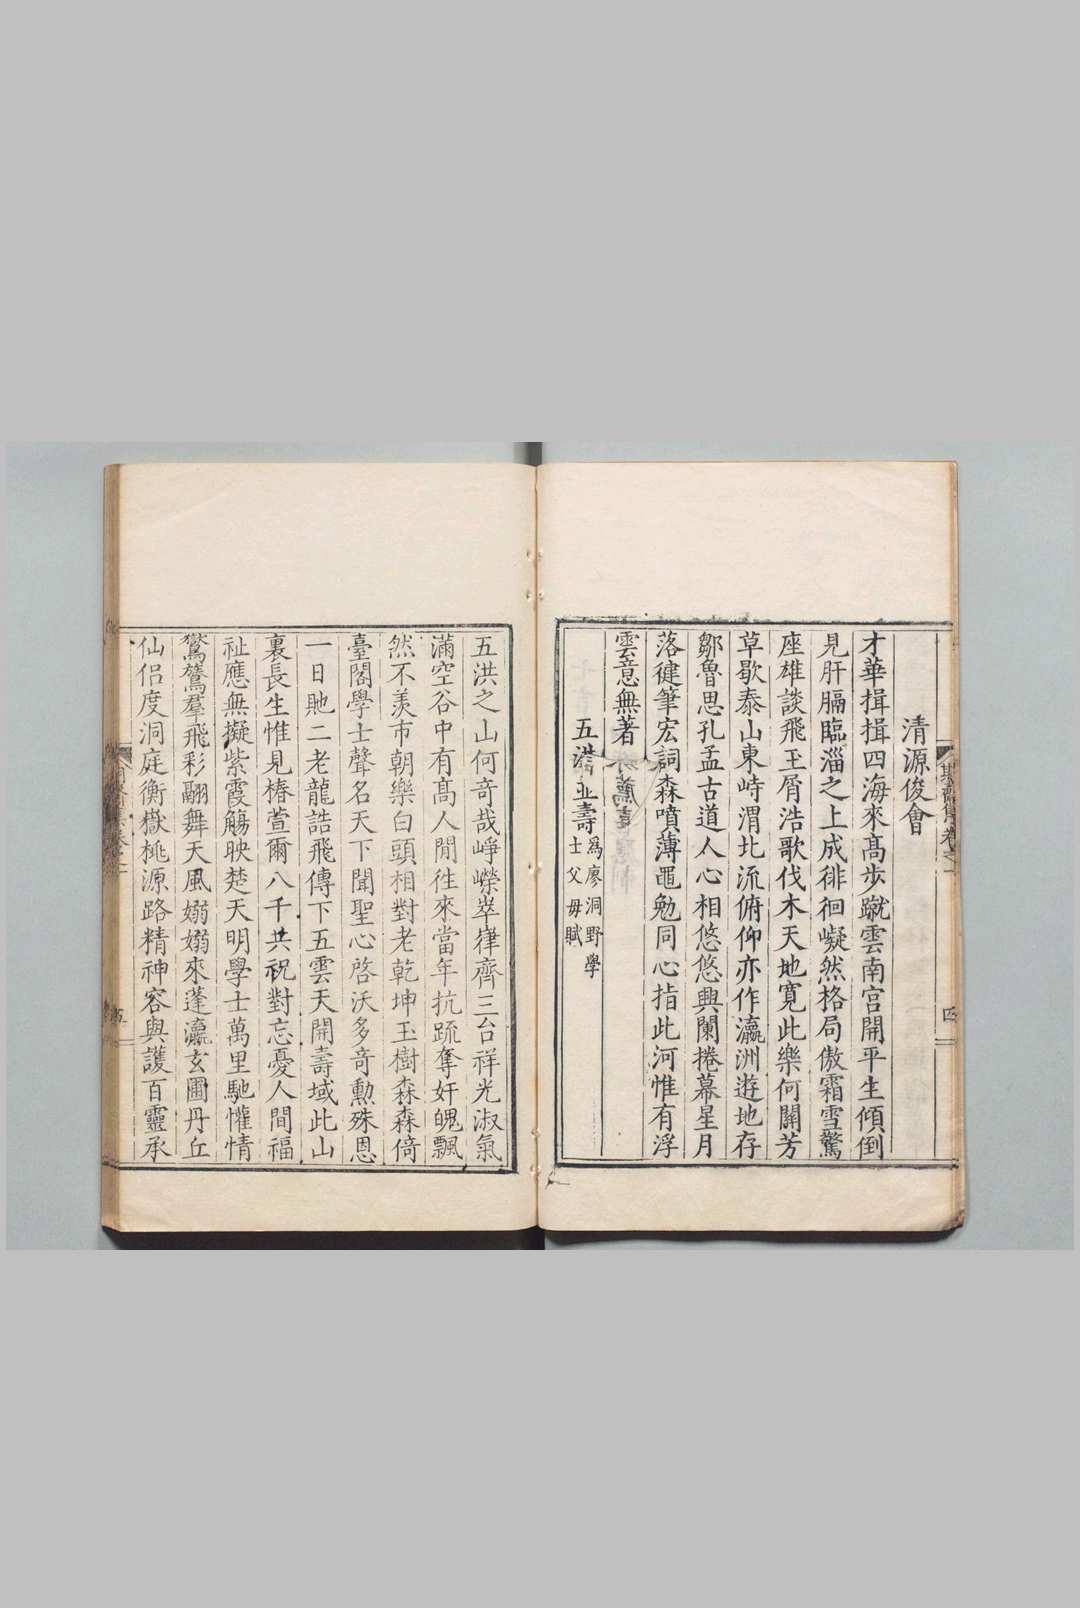 清源俊會
才華揖揖四海來高步蹴雲南宮開平生傾倒
見肝膈臨淄之上成徘徊嶷然格局傲霜雪驚
座雄談飛玉屑浩歌伐木天地寬此樂何關芳
草歇泰山東峙渭北流俯仰亦作瀛洲遊地存
鄒魯思孔孟古道人心相悠悠興闌捲幕星月
落徤筆宏詞森噴薄黽勉同心指此河惟有浮
雲意無著
五洪並壽爲廖洞野學
士父母賦
四
五洪之山何奇哉崢嶸崒嵂齊三台祥光淑氣
滿空谷中有高人閒徃來當年抗疏奪奸魄飄
然不羡市朝樂白頭相對老乾坤玉樹森森倚
臺閣學士聲名天下聞聖心啓沃多竒勳殊恩
一日貤二老龍誥飛傳下五雲天開壽域此山
裏長生惟見椿萱爾八千共祝對忘憂人間福
祉應無擬紫霞觴映楚天明學士萬里馳懽情
鸞鶱羣飛彩翮舞天風嫋嫋來蓬瀛玄圃丹丘
仙侣度洞庭衡嶽桃源路精神容與護百靈承
五